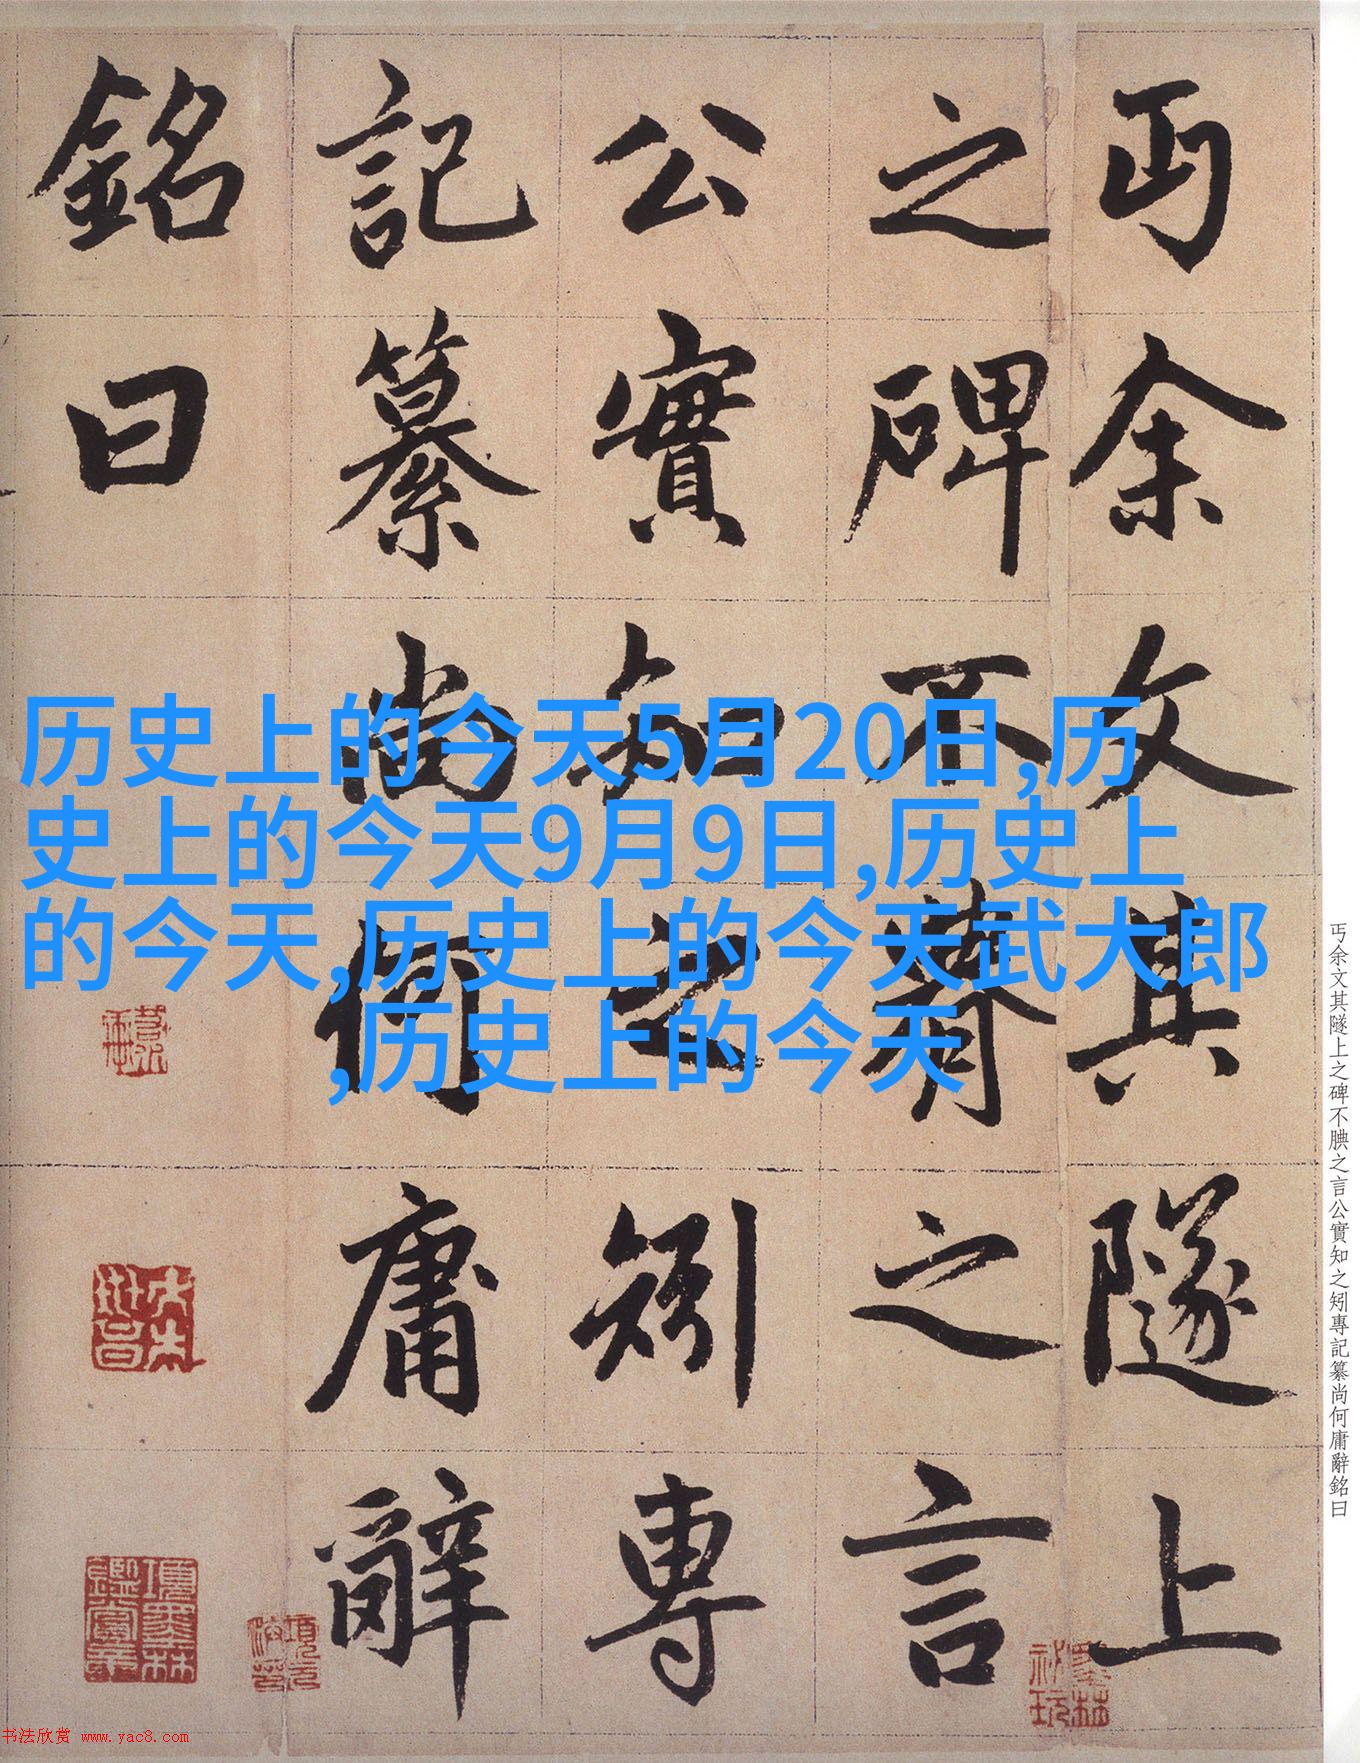 丏余文其隧上
之碑不腆之言
公實知之矧專
記纂尚何庸辭
銘曰
历史上的今天5月20日,历
史上的今天9月9日,历史上
的今天,历史上的今天武大郎
,历史上的今天
丏余文其隧上之碑不腆之言公實知之矧專記纂尚何庸辭銘曰
书法欣赏 www.yac8.com